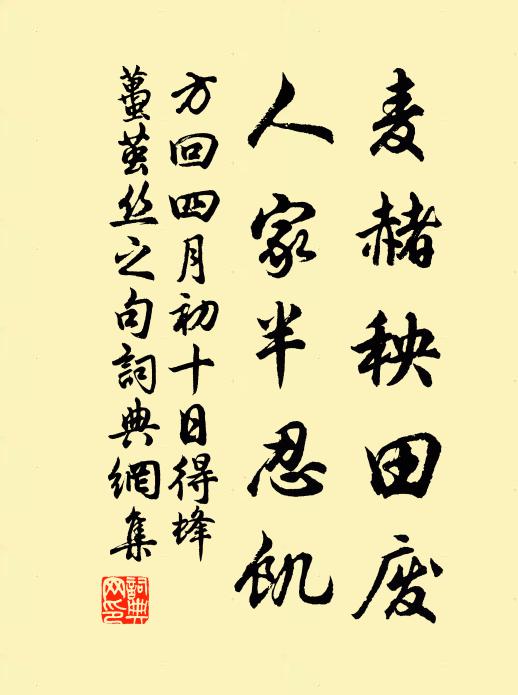 麦赭秧田废
人家半忍饥
方回四月初十日得蜂
蠆茧丝之句詞典網集
詞典網印